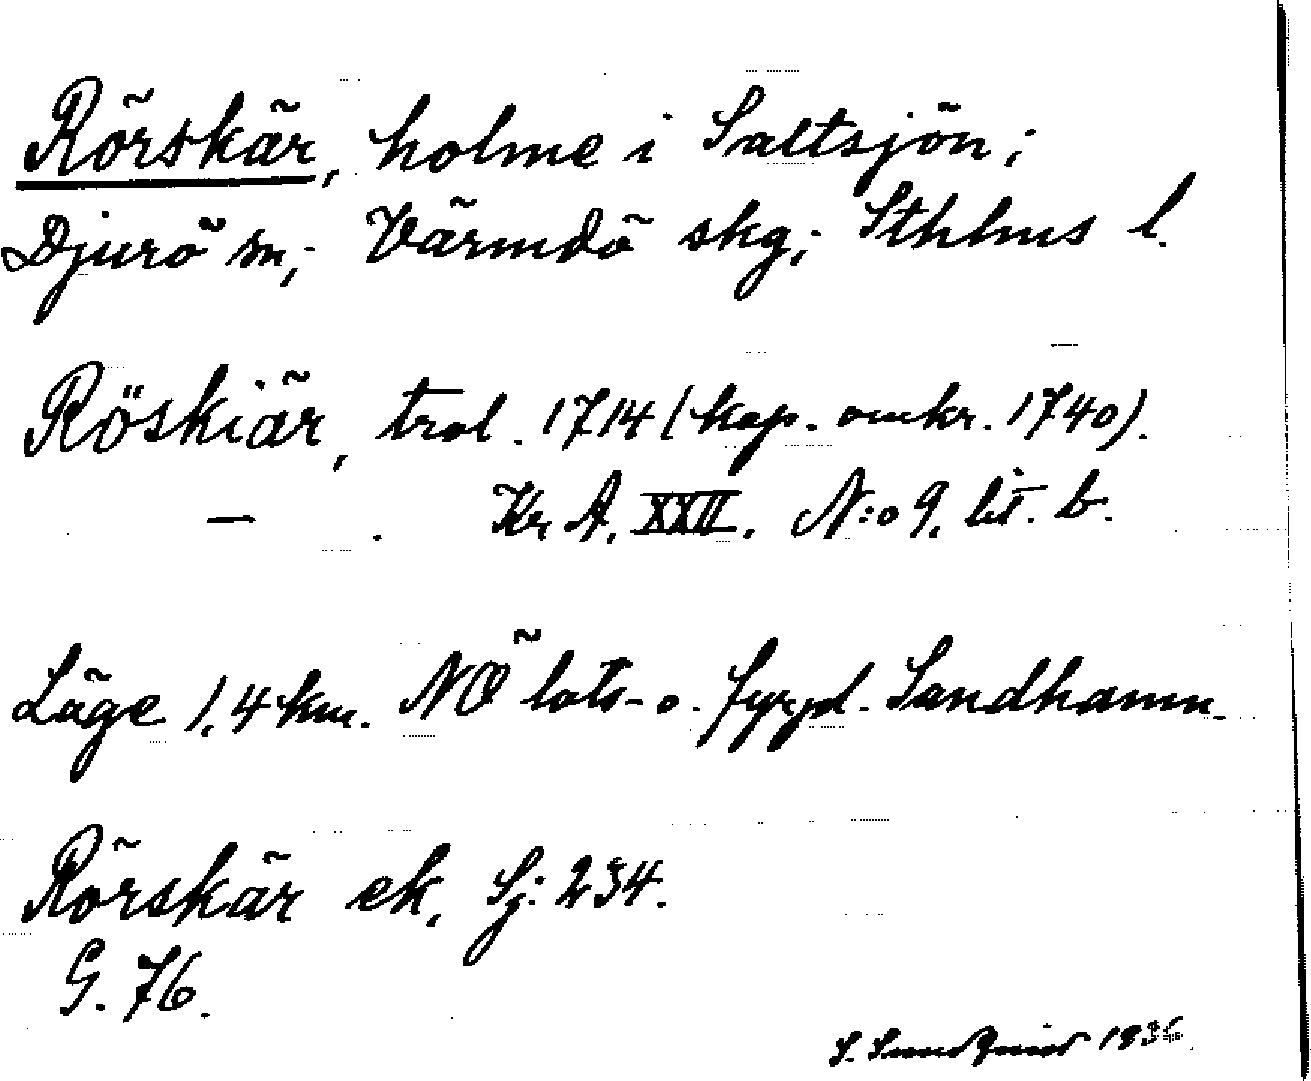 Rörskär, holme i Saltsjön;
Djurö sn; Värmdö skg; Sthlms l.
Röskiär, trol. 1714 (kop. omkr. 1740).
— . Kr A. XXII. N:o 9. lit. b.
Läge 1,4 km. NÖ lots- o. fyrpl. Sandhamn.
Rörskär ek, Sj: 234.
G. 76.
S. Sundquist 1936